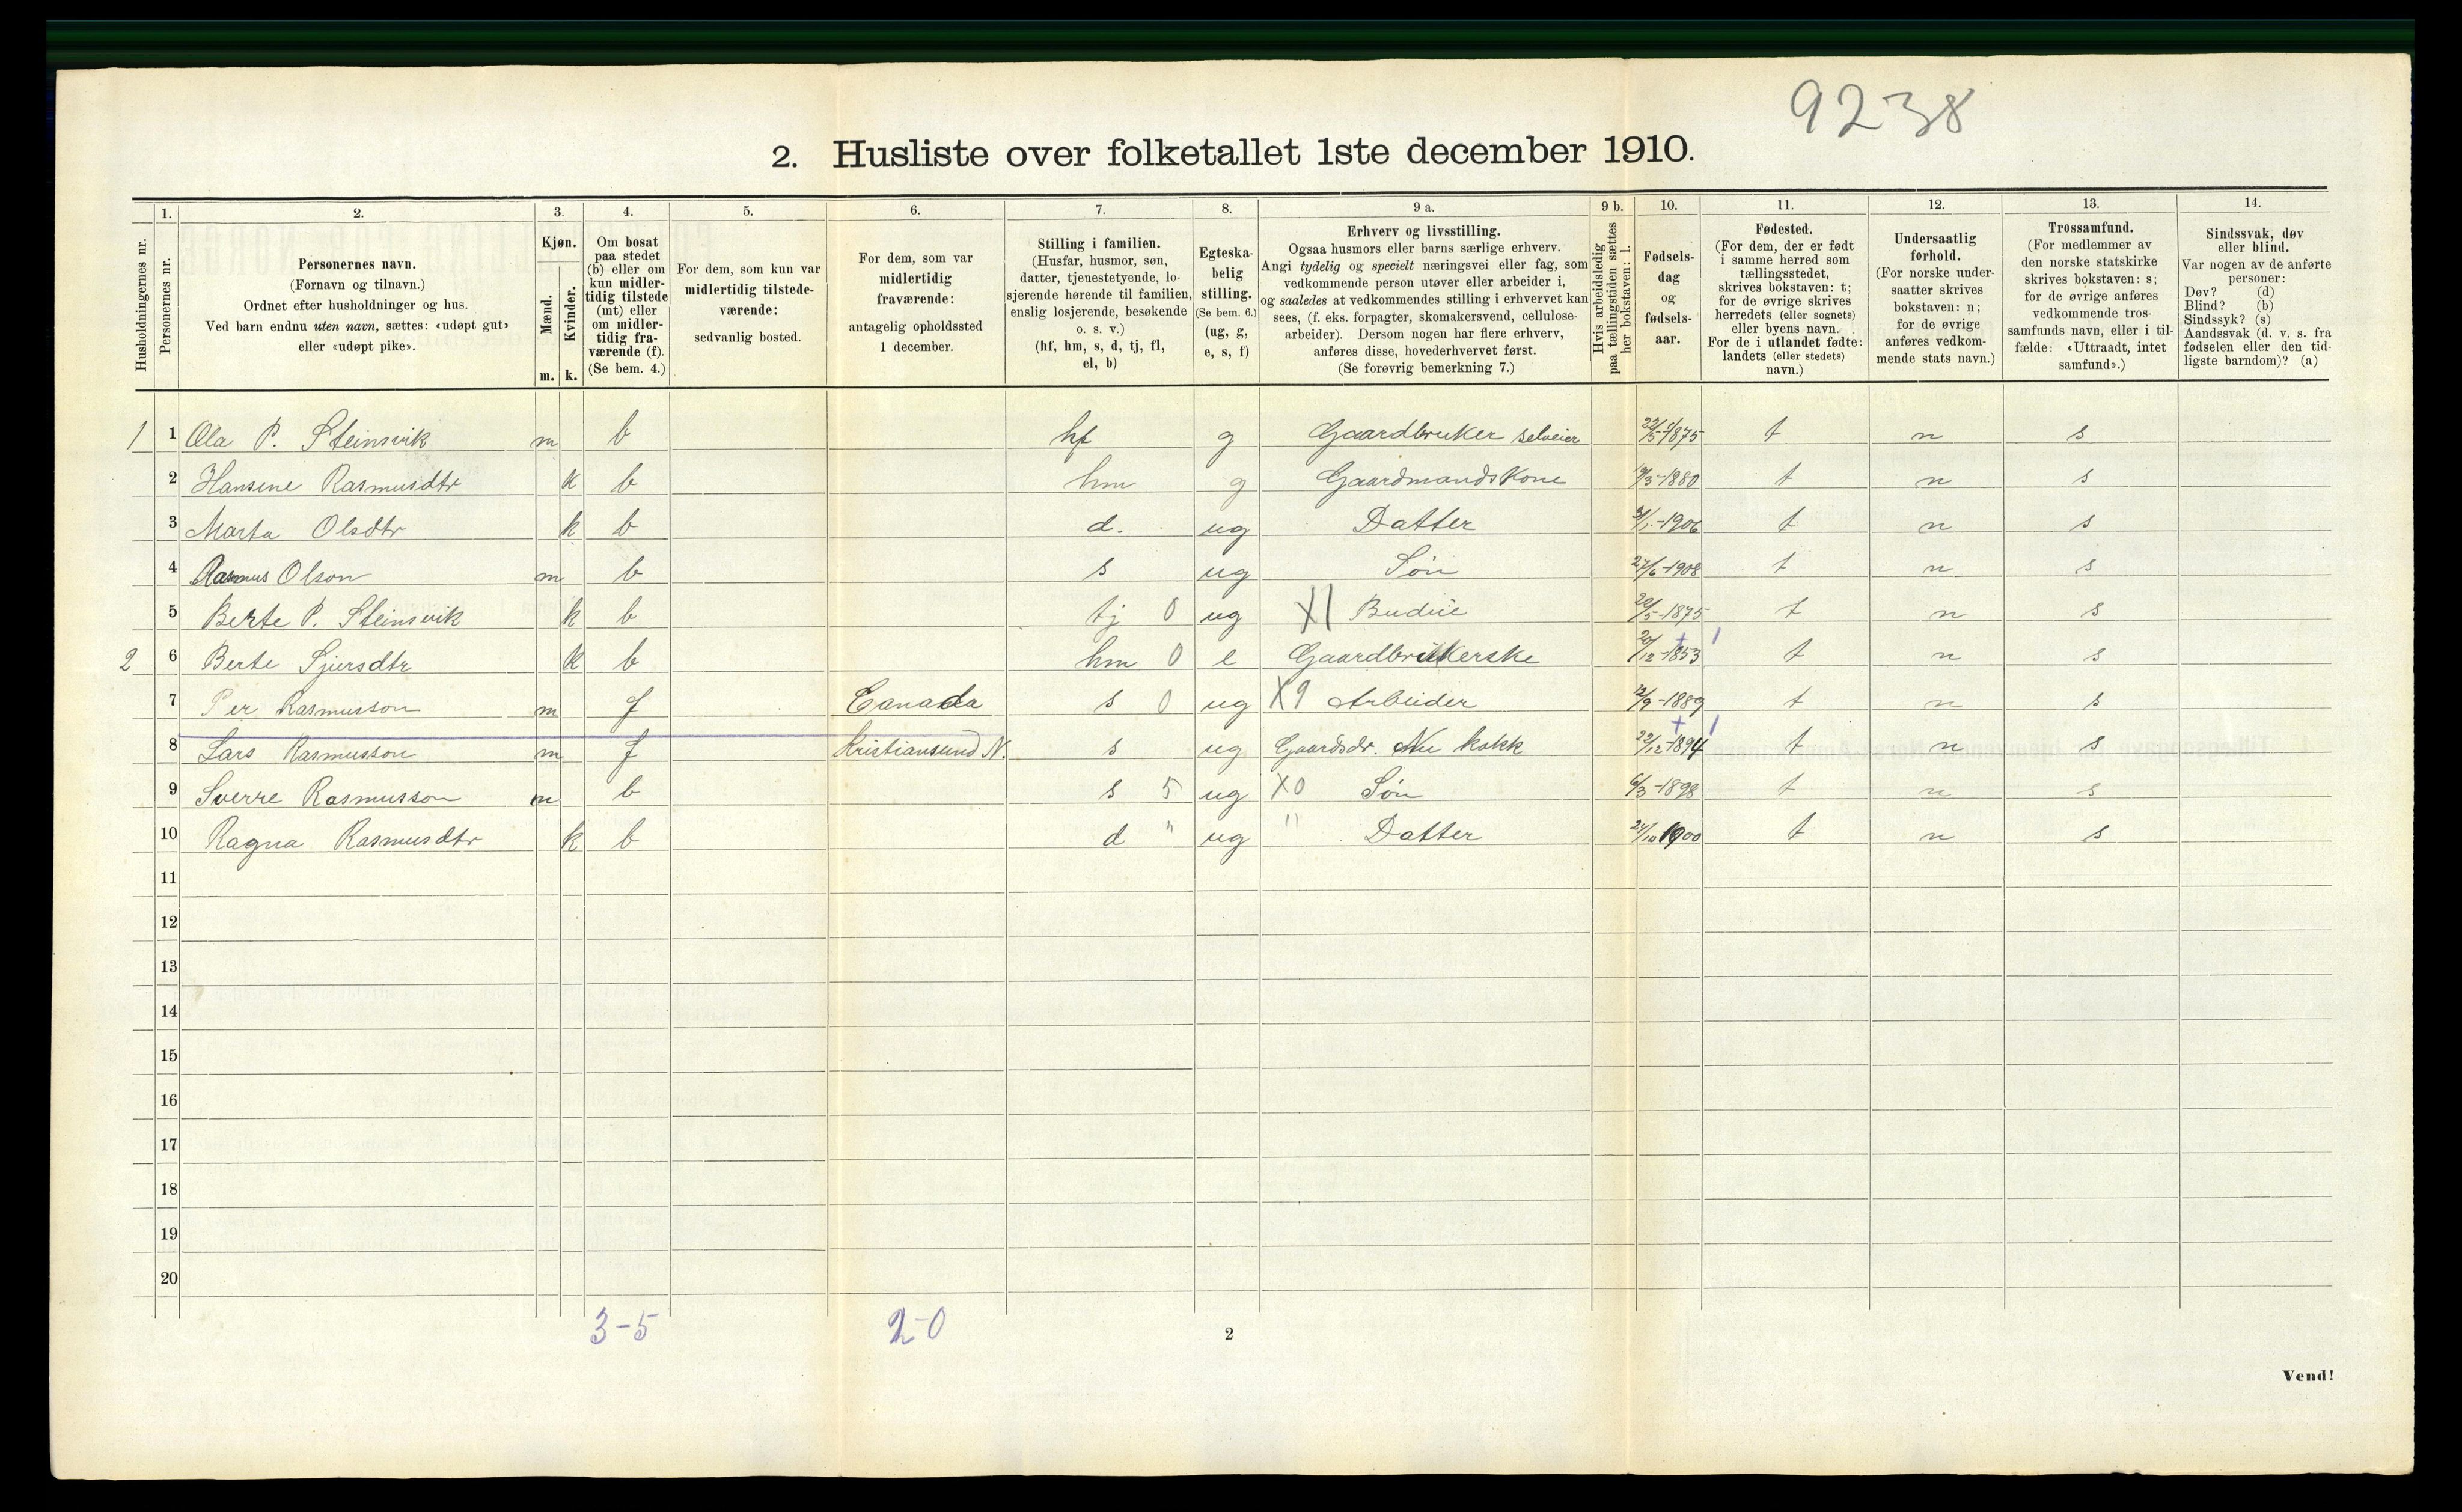 9238
2. Husliste over folketallet 1ste december 1910.
Husholdningernes nr.
1. Personernes nr.
2. Personernes navn.
(Fornavn og tilnavn.)
Ordnet efter husholdninger og hus.
Ved barn endnu uten navn, sættes: «udøpt gut»
eller «udøpt pike».
3. Kjøn.
Mænd. Kvinder.
m. k.
4. Om bosat
paa stedet
(b) eller om
kun midler-
tidig tilstede
(mt) eller
om midler-
tidig fra-
værende (f).
(Se bem. 4.)
5. For dem, som kun var
midlertidig tilstede-
værende:
sedvanlig bosted.
6. For dem, som var
midlertidig
fraværende:
antagelig opholdssted
1 december.
7. Stilling i familien.
(Husfar, husmor, søn,
datter, tjenestetyende, lo-
sjerende hørende til familien,
enslig losjerende, besøkende
o. s. v.)
(hf, hm, s, d, tj, fl,
el, b)
8. Egteska-
belig
stilling.
(Se bem. 6.)
(ug, g,
e, s, f)
9 a. Erhverv og livsstilling.
Ogsaa husmors eller barns særlige erhverv.
Angi tydelig og specielt næringsvei eller fag, som
vedkommende person utøver eller arbeider i,
og saaledes at vedkommendes stilling i erhvervet kan
sees, (f. eks. forpagter, skomakersvend, cellulose-
arbeider). Dersom nogen har flere erhverv,
anføres disse, hovederhvervet først.
(Se forøvrig bemerkning 7.)
9 b. Hvis arbeidsledig
paa tællingstiden sættes
her bokstaven: l.
10. Fødsels-
dag
og
fødsels-
aar.
11. Fødested.
(For dem, der er født
i samme herred som
tællingsstedet,
skrives bokstaven: t;
for de øvrige skrives
herredets (eller sognets)
eller byens navn.
For de i utlandet fødte:
landets (eller stedets)
navn.)
12. Undersaatlig
forhold.
(For norske under-
saatter skrives
bokstaven: n;
for de øvrige
anføres vedkom-
mende stats navn.)
13. Trossamfund.
(For medlemmer av
den norske statskirke
skrives bokstaven: s;
for de øvrige anføres
vedkommende tros-
samfunds navn, eller i til-
fælde: «Uttraadt, intet
samfund».)
14. Sindssvak, døv
eller blind.
Var nogen av de anførte
personer:
Døv? (d)
Blind? (b)
Sindssyk? (s)
Aandssvak (d. v. s. fra
fødselen eller den tid-
ligste barndom)? (a)
1 1 Ola P. Steinsvik m b hf g Gaardbruker selveier 22/5-1875 t n s
2 Hansene Rasmusdtr k b hm g Gaardmandskone 19/3-1880 t n s
3 Marta Olsdtr k b d. ug Datter 31/1-1906 t n s
4 Rasmus Olson m b s ug Søn 27/6-1908 t n s
5 Berte P. Steinsvik k b tj 0 ug X1 Budeie 20/5-1875 t n s
2 6 Berte Sjursdtr k b hm 0 e Gaardbrukerske 20/12-1853 t n s
7 Per Rasmusson m f Canada s 0 ug X9 Arbeider 12/9-1889 t n s
8 Lars Rasmusson m f Kristiansund N. s ug Gaardsdr. Nu kokk 22/12-1894 t n s
9 Sverre Rasmusson m b s 5 ug X0 Søn 6/3-1898 t n s
10 Ragna Rasmusdtr k b d " ug " Datter 24/10 1900 t n s
11
12
13
14
15
16
17
18
19
20
3-5 2-0
2
Vend!